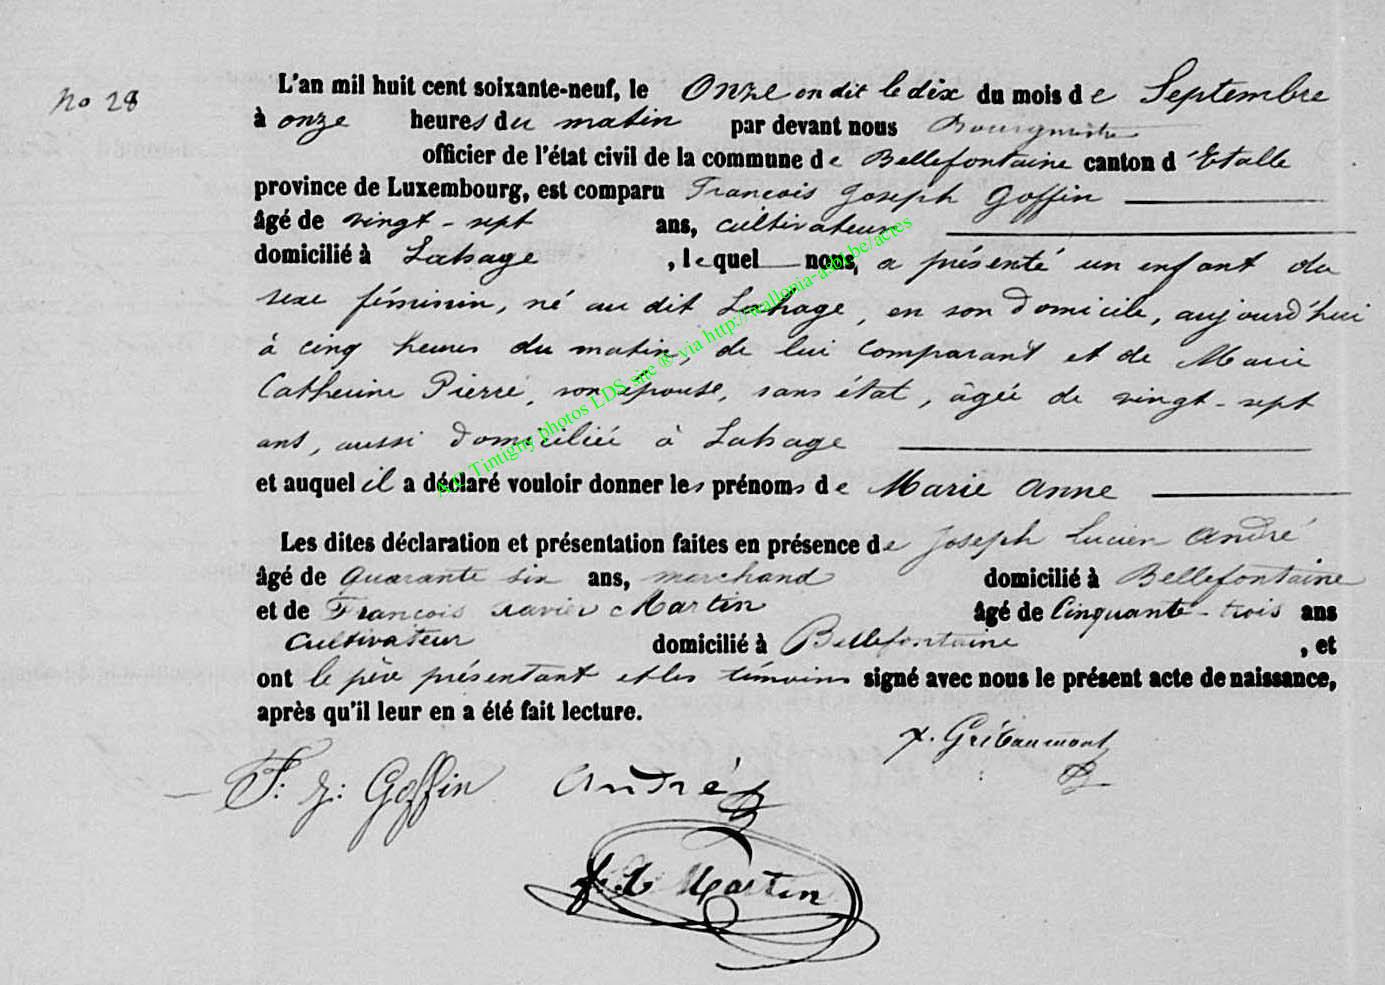 No 28
L'an mil huit cent soixante-neuf, le Onze on dit le dix du mois de Septembre
à onze heures du matin par devant nous Bourgmestre
officier de l'état civil de la commune de Bellefontaine canton d'Etalle
province de Luxembourg, est comparu François Joseph Goffin
âgé de vingt-sept ans, cultivateur
domicilié à Lahage, lequel nous, a présenté un enfant du
sexe féminin, né au dit Lahage, en son domicile, aujourd'hui
à cinq heures du matin, de lui comparant et de Marie
Catherine Pierre, son épouse, sans état, âgée de vingt-sept
ans, aussi domiciliée à Lahage
et auquel il a déclaré vouloir donner les prénoms de Marie Anne
Les dites déclaration et présentation faites en présence de Joseph Lucien André
âgé de Quarante six ans, marchand domicilié à Bellefontaine
et de François Xavier Martin âgé de Cinquante-trois ans
Cultivateur domicilié à Bellefontaine, et
ont le père présentant et les témoins signé avec nous le présent acte de naissance,
après qu'il leur en a été fait lecture.
x. Gribaumont
F. j: Goffin André
f. X Martin
A.C Tintigny photos LDS site ® via http://wallonia-asbl.be/actes